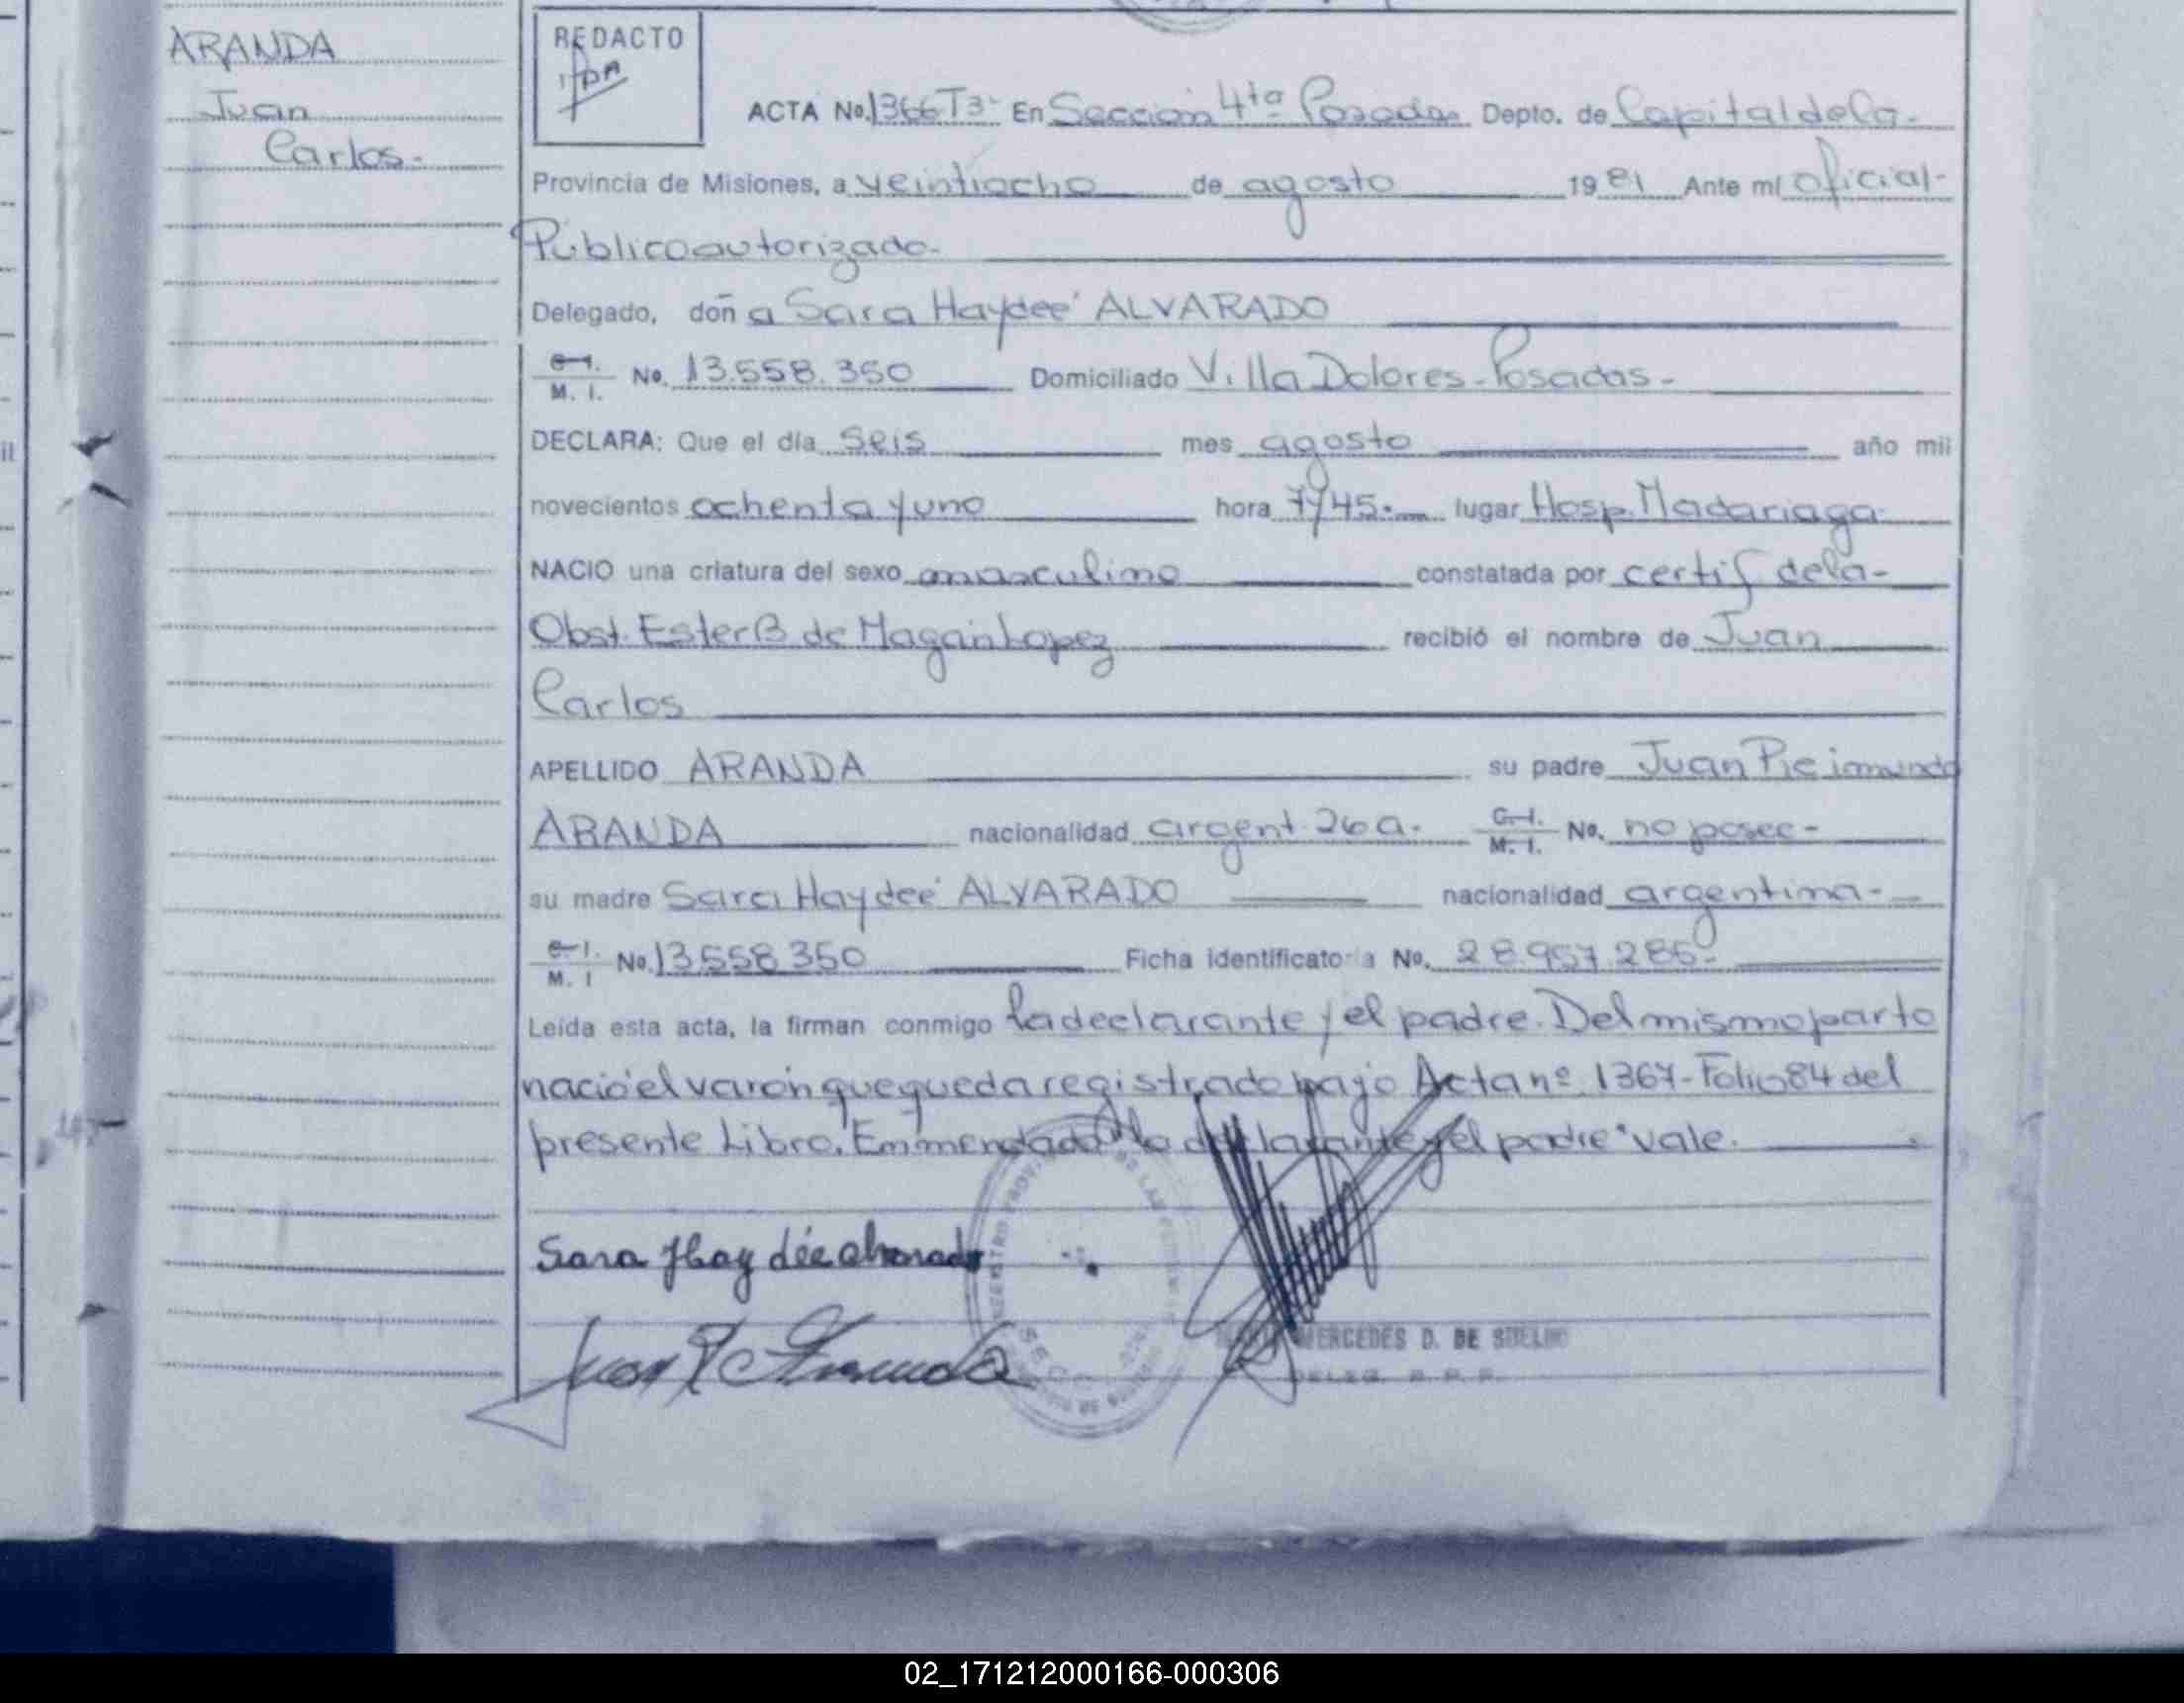 ARANDA
Juan
Carlos.-
REDACTO
ACTA No. 1366 T3- En Sección 4ta Posadas Depto. de Capital de la-
Provincia de Misiones, a veintiocho de agosto 1981 Ante mí oficial-
Público autorizado.-
Delegado, doña Sara Haydeé ALVARADO
C. I. M. I. No. 13.558.350 Domiciliado Villa Dolores-Posadas-
DECLARA: Que el día seis mes agosto año mil
novecientos ochenta y uno hora 7y45.- lugar Hosp. Madariaga
NACIO una criatura del sexo masculino constatada por certif de la-
Obst. Ester B de Magain Lopez recibió el nombre de Juan
Carlos
APELLIDO ARANDA su padre Juan
ARANDA nacionalidad argent. 26 a. C. I. M. I. No. no posee-
su madre Sara Haydeé ALVARADO nacionalidad argentina-
C. I. M. I No. 13558350 Ficha identificatoria No. 28.957.285-
Leída esta acta, la firman conmigo la declarante y el padre. Del mismo parto
nació el varón que queda registrado bajo Acta nº 1367-Folio 84 del
presente Libro. Enmendado "la declarante y el padre" vale.
Sara Haydée Alvarado
Juan R Aranda
MERCEDES D. DE
02_171212000166-000306